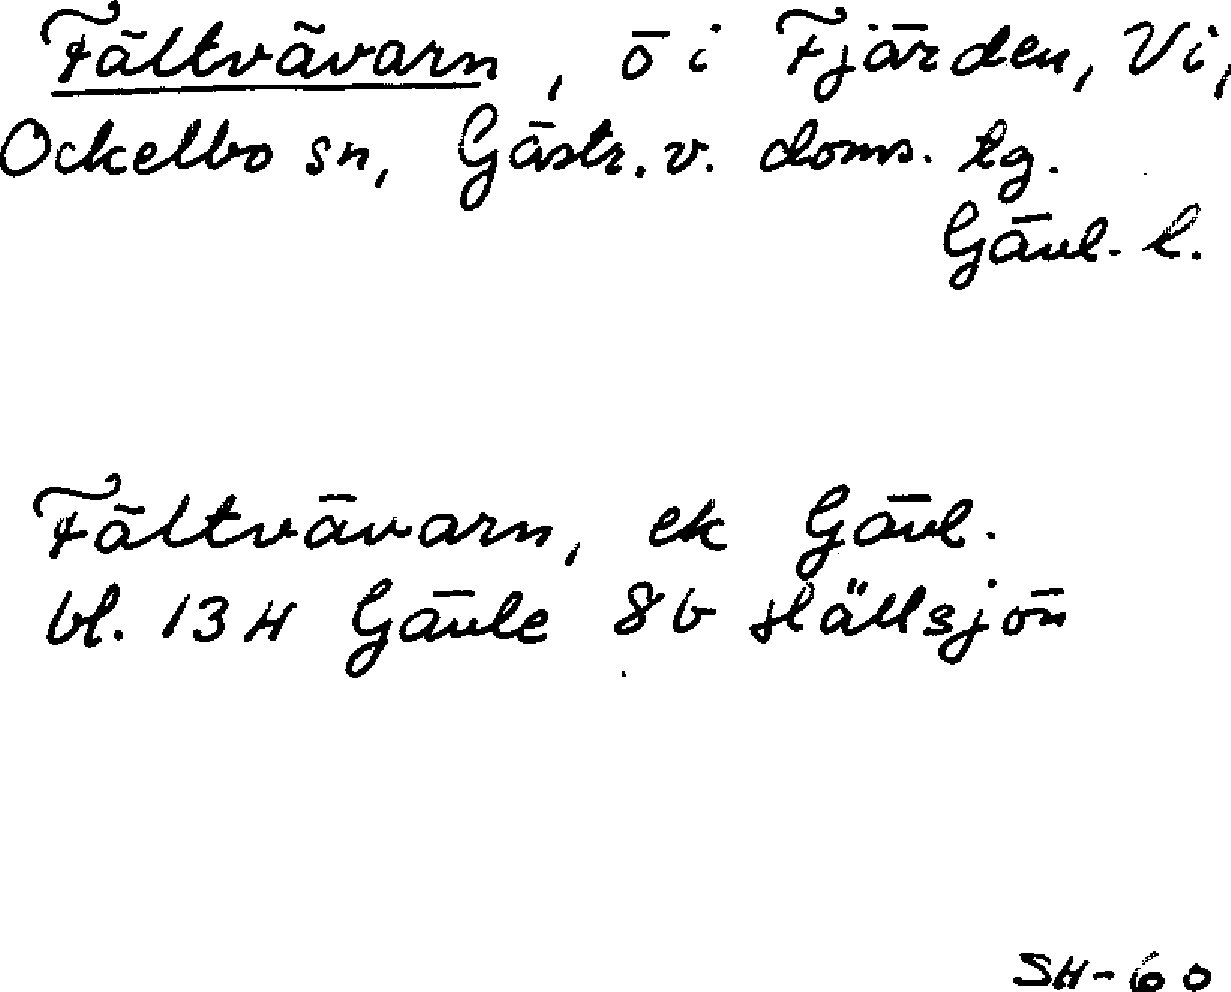 Fältvävarn, ö i Fjärden, Vi,
Ockelbo sn, Gästr. v. doms. tg.
Gävl. l.
Fältvävarn, ek Gävl.
bl. 13 H Gävle 8b Hällsjön
SH-60